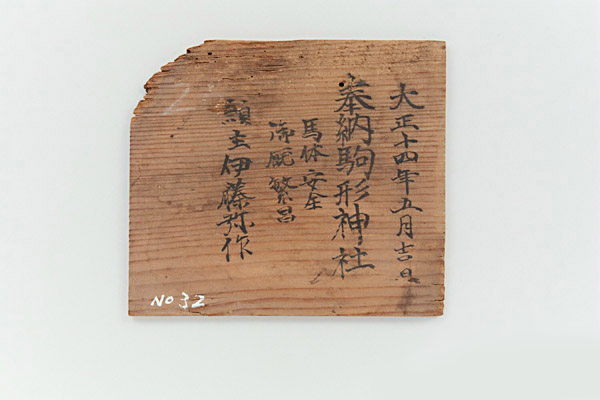 大正十四年五月吉日
奉納駒形神社
馬体安全
御厩繁昌
願主伊藤弥作
NO 32